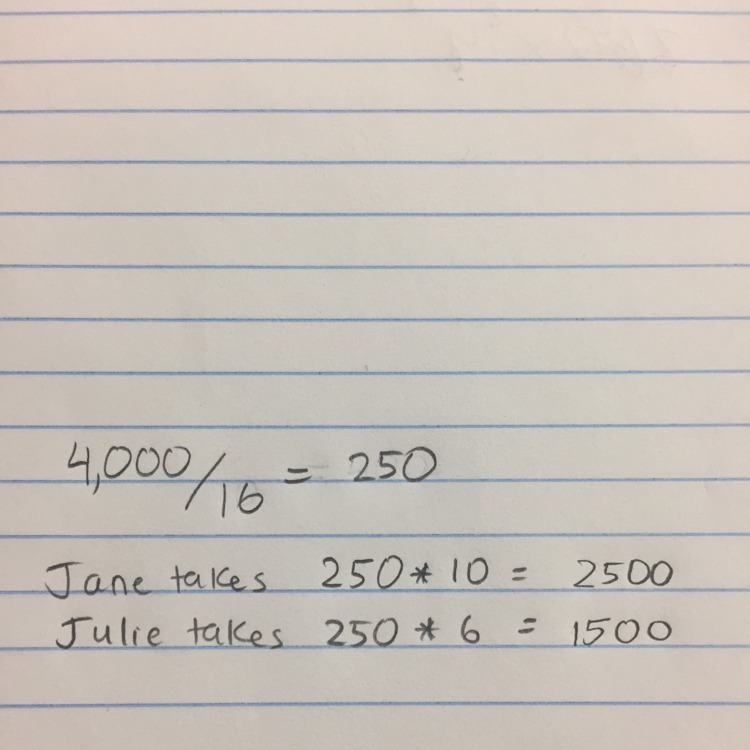 4,000/16 = 250
Jane takes 250 * 10 = 2500
Julie takes 250 * 6 = 1500